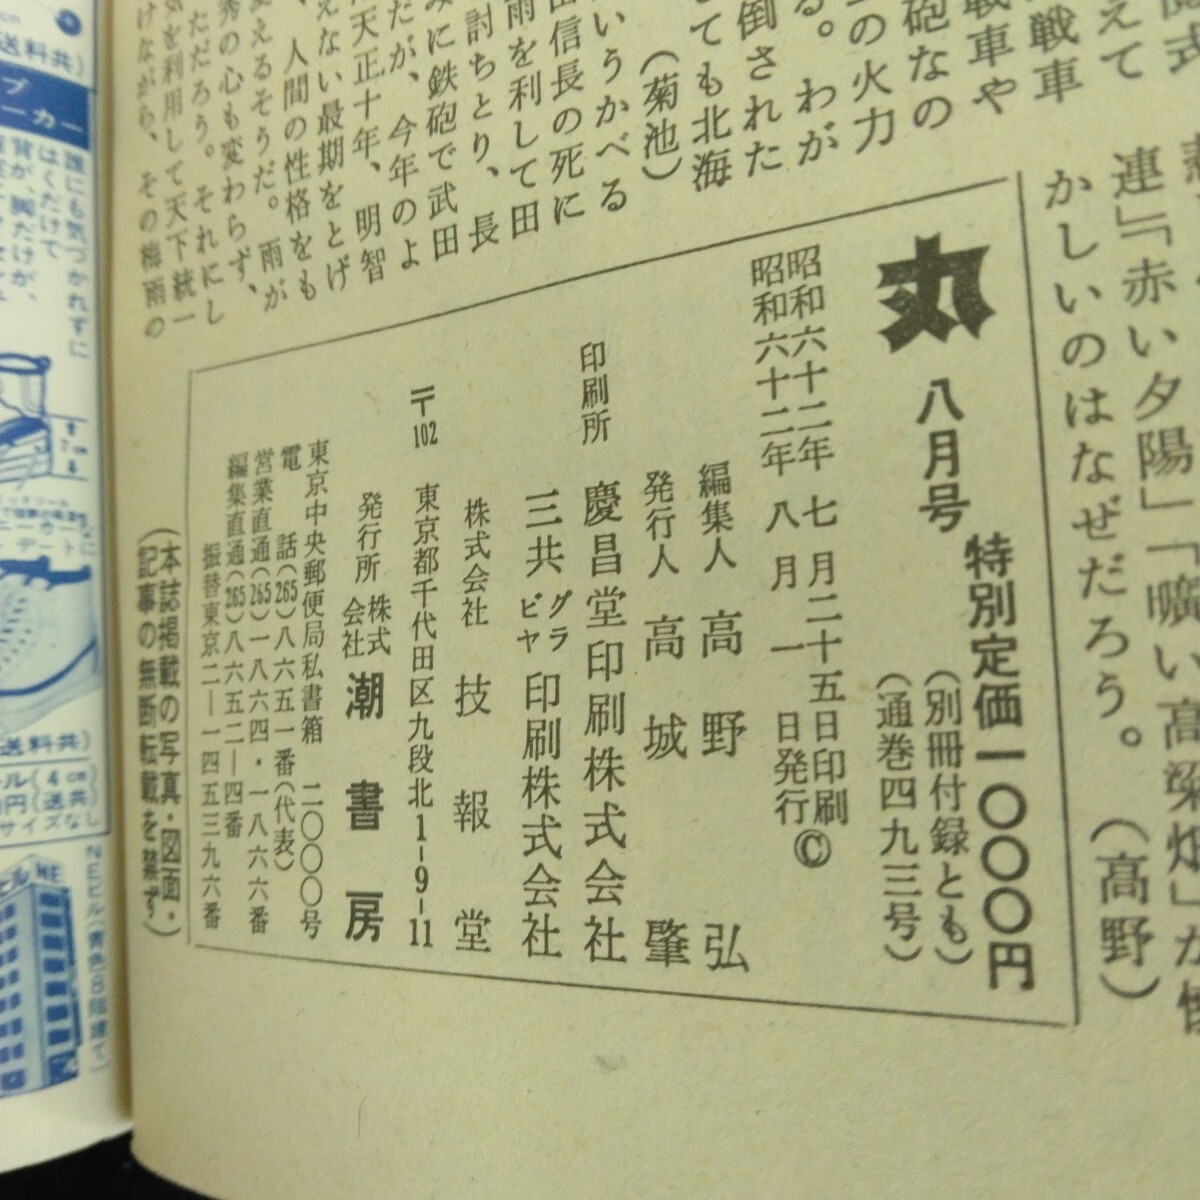 連』『赤い夕陽」「曠い高梁畑」が懐
かしいのはなぜだろう。（高野）
えて
戦車
戦車や
砲なの
の火力
る。わが
倒された
ても北海
（菊池）
いうかべる
信長の死に
雨を利して田
討ちとり、長
みに鉄砲で武田
だが、今年のよ
天正十年、明智
えない最期をとげ
、人間の性格をも
変えるそうだ。雨が
秀の心も変わらず、
ただろう。それにし
気を利用して天下統一
けながら、その梅雨の
丸 八月号
特別定価一〇〇〇円
（別冊付録とも）
（通巻四九三号）
昭和六十二年 七月二十五日印刷
昭和六十二年 八月一日発行©
編集人 高野 弘
発行人 高城 肇
印刷所 慶昌堂印刷株式会社
三共グラビヤ印刷株式会社
株式会社 技報堂
〒102 東京都千代田区九段北1-9-11
発行所 株式会社 潮書房
東京中央郵便局私書箱 二〇〇〇号
電話(265)八六五一番(代表)
営業直通(265)一八六四・一八六六番
編集直通(265)八六五二—四番
振替東京二—一四五三九六番
（本誌掲載の写真・図面・
記事の無断転載を禁ず）
送料共）
ーカー
誰にも気づかれずに
はくだけで
背が、脚だけが、
7cm
デートに
送料共）
ル（4cm
円（送共）
サイズなし
NEビル（青色8階建て）
ビル NE